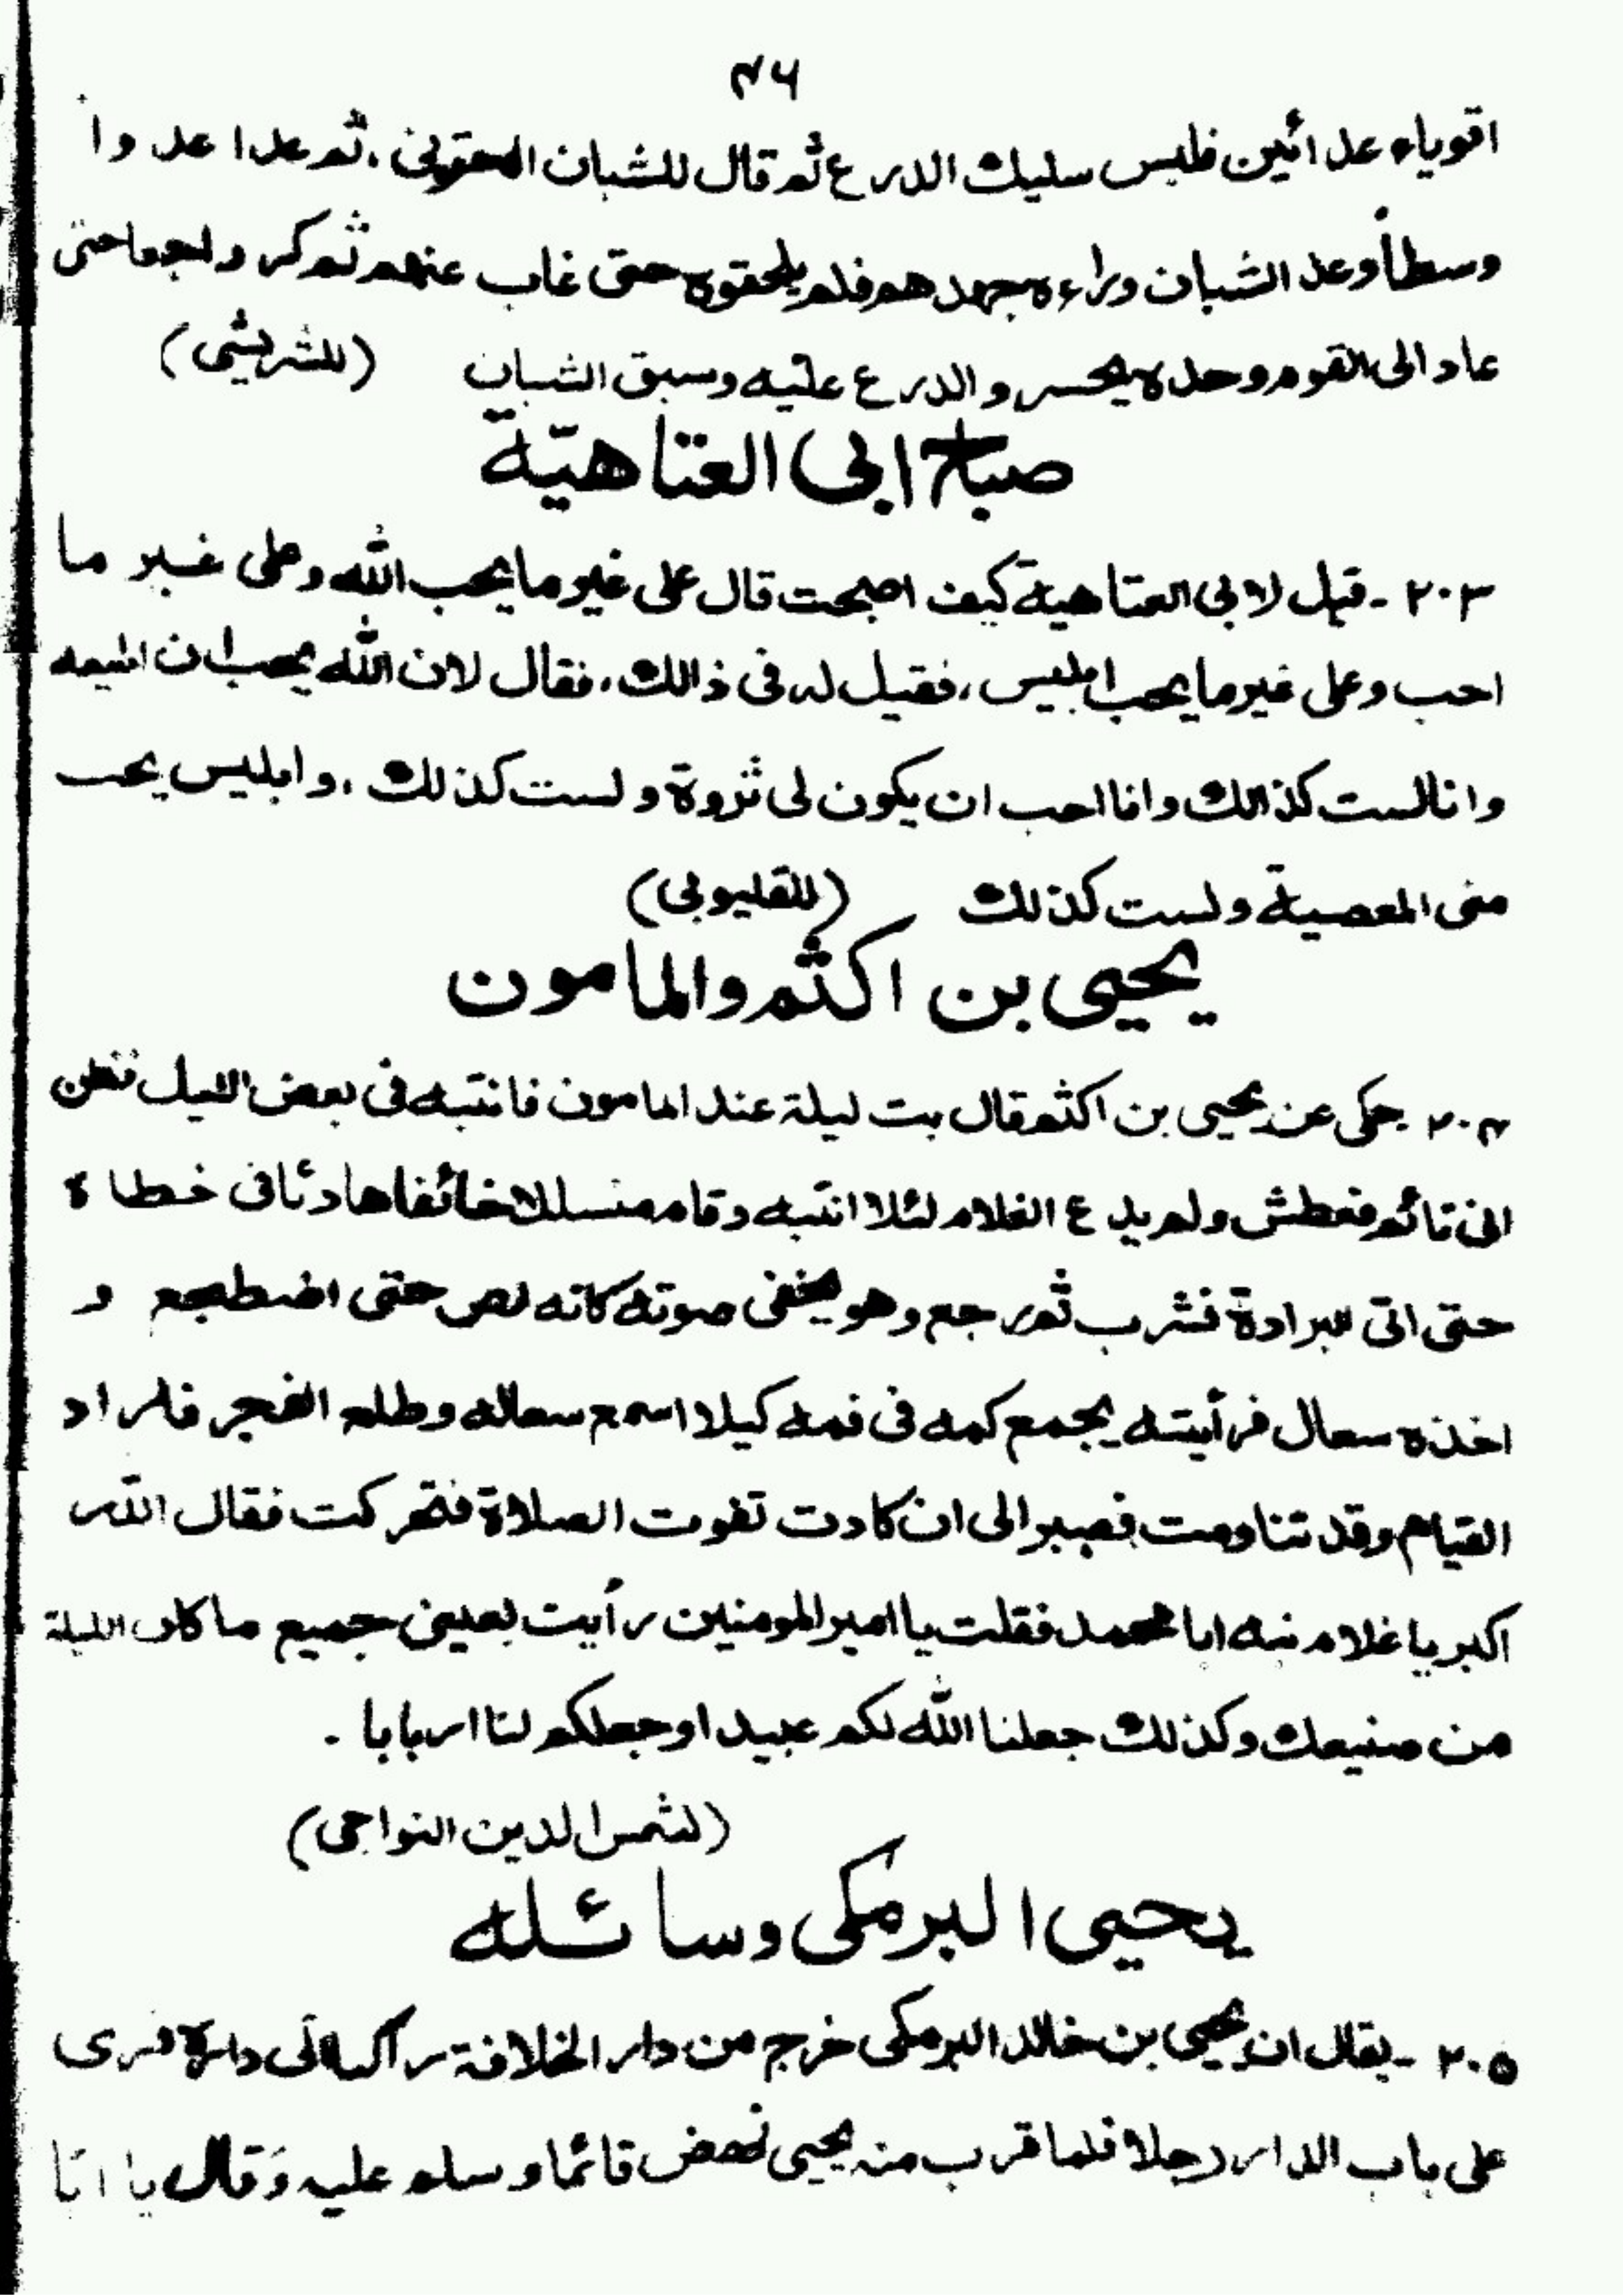 ٤٦
اقوياء عدائين فلبس سليك الدرع ثم قال للشبان الحقونى، ثم عدا عد وا
وسطأ وعد الشبان وراءه جهد هم فلم يلحقوه حتى غاب عنهم ثم كر راجعا حتى
عاد الى القوم وحده يحسر و الدرع عليه وسبق الشبان (للشريشى)
صباح ابى العتاهيّة
٢٠٣ - قيل لابى العتاهية كيف اصبحت قال على غير ما يحب الله وعلى غير ما
احب وعلى غير ما يحب ابليس، فقيل له فى ذالك، فقال لان الله يحب ان اطيعه
وانا لست كذالك وانا احب ان يكون لى ثروة ولست كذلك، وابليس يحب
منى المعصية ولست كذلك (للقليوبى)
يحيى بن اكثم والمامون
٢٠٤ حكى عن يحيى بن اكثم قال بت ليلة عند المامون فانتبه فى بعض الليل فظن
انى نائم فعطش ولم يدع الغلام لئلا انتبه وقام منسللا خائفا هادئا فى خطاه
حتى اتى البرادة فشرب ثم رجع وهو يخفى صوته كانه لص حتى اضطجع و
اخذه سعال فرأيته يجمع كمه فى فمه كيلا اسمع سعاله وطلع الفجر فاراد
القيام وقد تناومت فصبر الى ان كادت تفوت الصلاة فتحركت فقال الله
اكبر يا غلام نبه ابا محمد فقلت يا امير المومنين رأيت بعينى جميع ما كان الليلة
من صنيعك وكذلك جعلنا الله لكم عبيدا وجعلكم لنا اربابا .
(لشمس الدين النواجى)
يحيى البرمكى وسائله
٢٠٥ - يقال ان يحيى بن خالد البرمكى خرج من دار الخلافة راكبا الى داره فرى
على باب الدار رجلا فلما قرب منه يحيى نهض قائما وسلم عليه وَقال يا ابا